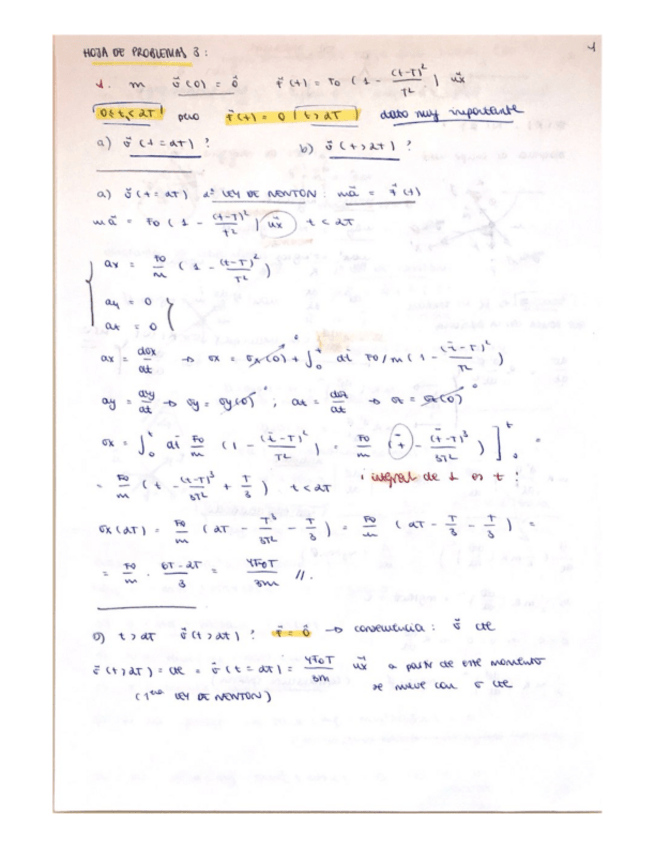 HOJA DE PROBLEMAS 3 :
1
1. m v⃗(0) = 0⃗ F⃗(t) = F0 (1 - (t-T)²/T²) u⃗x
0 < t < 2T pero F⃗(t) = 0 t > 2T dato muy importante
a) v⃗(t = 2T) ? b) v⃗(t > 2T) ?
a) v⃗(t = 2T) 2ª LEY DE NEWTON : ma⃗ = F⃗(t)
ma⃗ = F0 (1 - (t-T)²/T²) u⃗x t < 2T
ax = F0/m (1 - (t-T)²/T²)
ay = 0
az = 0
ax = dvx/dt → vx = vx(0) + ∫₀ᵗ dt F0/m (1 - (t-T)²/T²)
ay = dvy/dt → vy = vy(0) ; az = dvz/dt → vz = vz(0)
vx = ∫₀ᵗ dt F0/m (1 - (t-T)²/T²) = F0/m (t - (t-T)³/3T²) ]₀ᵗ =
= F0/m (t - (t-T)³/3T² + T/3) . t < 2T ¡ integral de 1 es t !
vx(2T) = F0/m (2T - T³/3T² - T/3) = F0/m (2T - T/3 - T/3) =
= F0/m · 6T - 2T/3 = 4F0T/3m //.
b) t > 2T v⃗(t > 2T) ? F⃗ = 0⃗ → consecuencia : v⃗ cte
v⃗(t > 2T) = cte = v⃗(t = 2T) = 4F0T/3m u⃗x a partir de este momento
(1era LEY DE NEWTON) se mueve con v cte